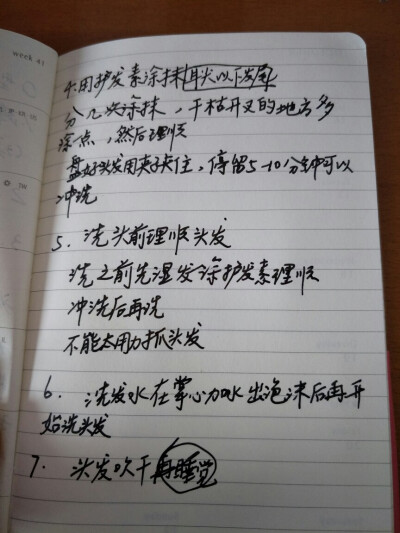 week 41
4.用护发素涂抹耳尖以下发尾
分几次涂抹，干枯开叉的地方多
涂一点，然后理顺
盘好头发用夹子夹住，停留5-10分钟可以
冲洗
5. 洗头前理顺头发
洗之前先湿发涂护发素理顺
冲洗后再洗
不能太用力抓头发
6. 洗发水在掌心加水出泡沫后再开
始洗头发
7. 头发吹干再睡觉